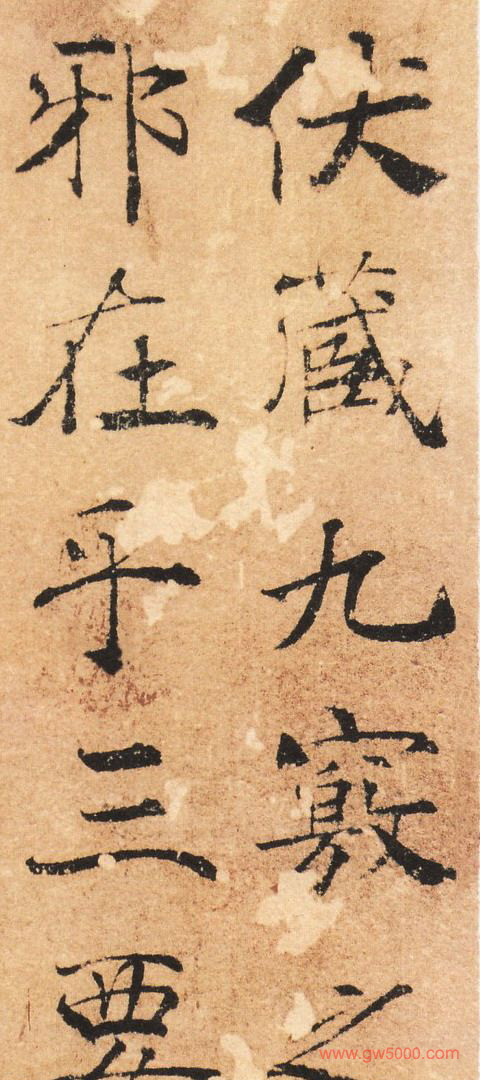 伏藏九竅之
邪在乎三要
www.gw5000.com